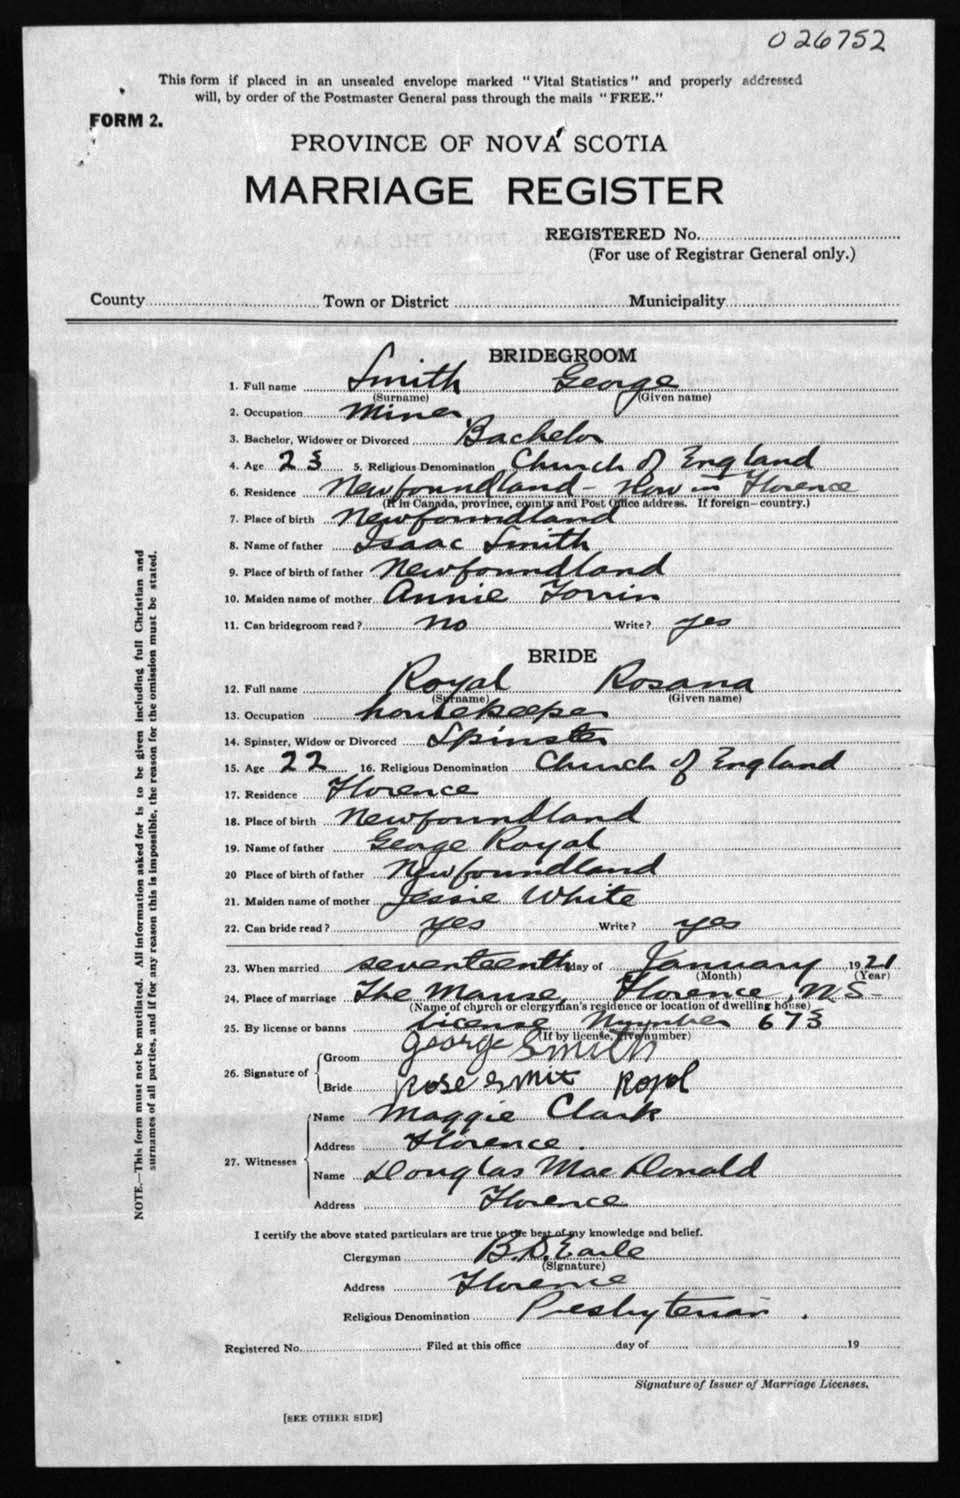 026752
This form if placed in an unsealed envelope marked "Vital Statistics" and properly addressed
will, by order of the Postmaster General pass through the mails "FREE."
FORM 2.
PROVINCE OF NOVA SCOTIA
MARRIAGE REGISTER
REGISTERED No.
(For use of Registrar General only.)
County Town or District Municipality
BRIDEGROOM
1. Full name Smith George
(Surname) (Given name)
2. Occupation Miner
3. Bachelor, Widower or Divorced Bachelor
4. Age 23 5. Religious Denomination Church of England
6. Residence Newfoundland - Now in Florence
(If in Canada, province, county and Post Office address. If foreign—country.)
7. Place of birth Newfoundland
8. Name of father Isaac Smith
9. Place of birth of father Newfoundland
10. Maiden name of mother Annie
11. Can bridegroom read? No Write? yes
BRIDE
12. Full name Royal Rosana
(Surname) (Given name)
13. Occupation housekeeper
14. Spinster, Widow or Divorced Spinster
15. Age 22 16. Religious Denomination Church of England
17. Residence Florence
18. Place of birth Newfoundland
19. Name of father George Royal
20 Place of birth of father Newfoundland
21. Maiden name of mother Jessie White
22. Can bride read? yes Write? yes
23. When married seventeenth day of January 1921
(Month) (Year)
24. Place of marriage The Manse, Florence, N.S-
(Name of church or clergyman's residence or location of dwelling house)
25. By license or banns license Number 673
(If by license, give number)
26. Signature of Groom George Smith
Bride Rose Smit Royol
27. Witnesses Name Maggie Clark
Address Florence.
Name Douglas MacDonald
Address Florence
I certify the above stated particulars are true to the best of my knowledge and belief.
Clergyman B.D. Earle
(Signature)
Address Florence
Religious Denomination Presbyterian.
Registered No. Filed at this office day of 19
Signature of Issuer of Marriage Licenses.
[SEE OTHER SIDE]
NOTE.—This form must not be mutilated. All information asked for is to be given including full Christian and
surnames of all parties, and if for any reason this is impossible, the reason for the omission must be stated.